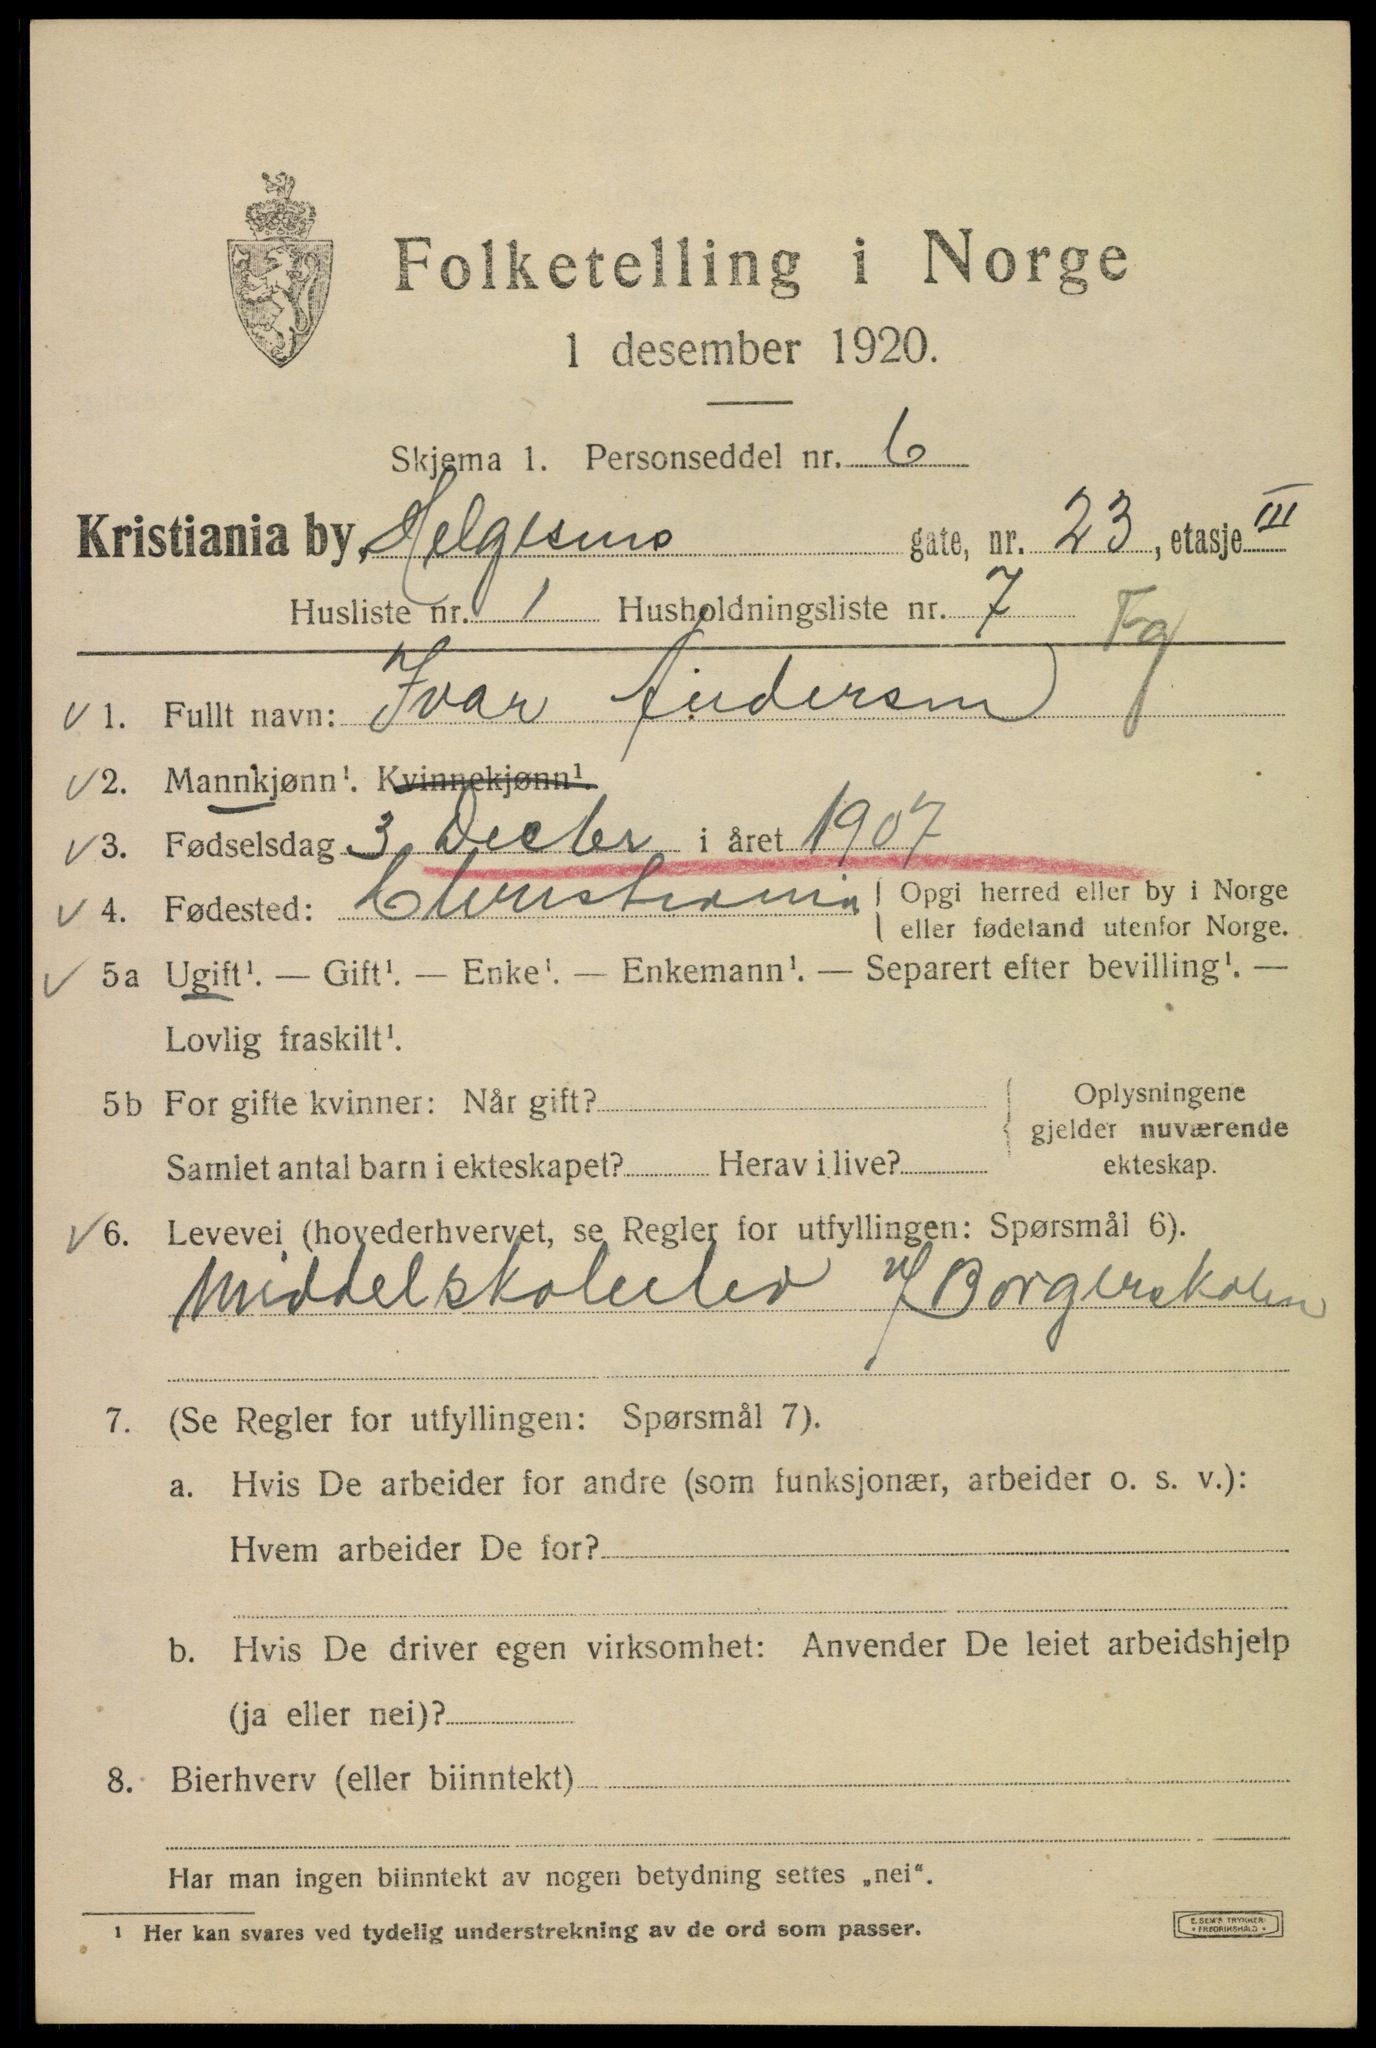 Folketelling i Norge
1 desember 1920.
Skjema 1. Personseddel nr. 6
Kristiania by, Helgesens gate, nr. 23, etasje III
Husliste nr. 1 Husholdningsliste nr. 7 Fg
√ 1. Fullt navn: Ivar Andersen
√ 2. Mannkjønn¹. Kvinnekjønn¹.
√ 3. Fødselsdag 3 Decbr i året 1907
√ 4. Fødested: Christiania Opgi herred eller by i Norge
eller fødeland utenfor Norge.
√ 5a Ugift¹. — Gift¹. — Enke¹. — Enkemann¹. — Separert efter bevilling¹. —
Lovlig fraskilt¹.
5b For gifte kvinner: Når gift? Oplysningene
gjelder nuværende
Samlet antal barn i ekteskapet? Herav i live? ekteskap.
√ 6. Levevei (hovederhvervet, se Regler for utfyllingen: Spørsmål 6).
Middelskoleelev v/ Borgerskolen
7. (Se Regler for utfyllingen: Spørsmål 7).
a. Hvis De arbeider for andre (som funksjonær, arbeider o. s. v.):
Hvem arbeider De for?
b. Hvis De driver egen virksomhet: Anvender De leiet arbeidshjelp
(ja eller nei)?
8. Bierhverv (eller biinntekt)
Har man ingen biinntekt av nogen betydning settes „nei“.
¹ Her kan svares ved tydelig understrekning av de ord som passer.
E. SEM'S TRYKKERI
• FREDRIKSHALD •